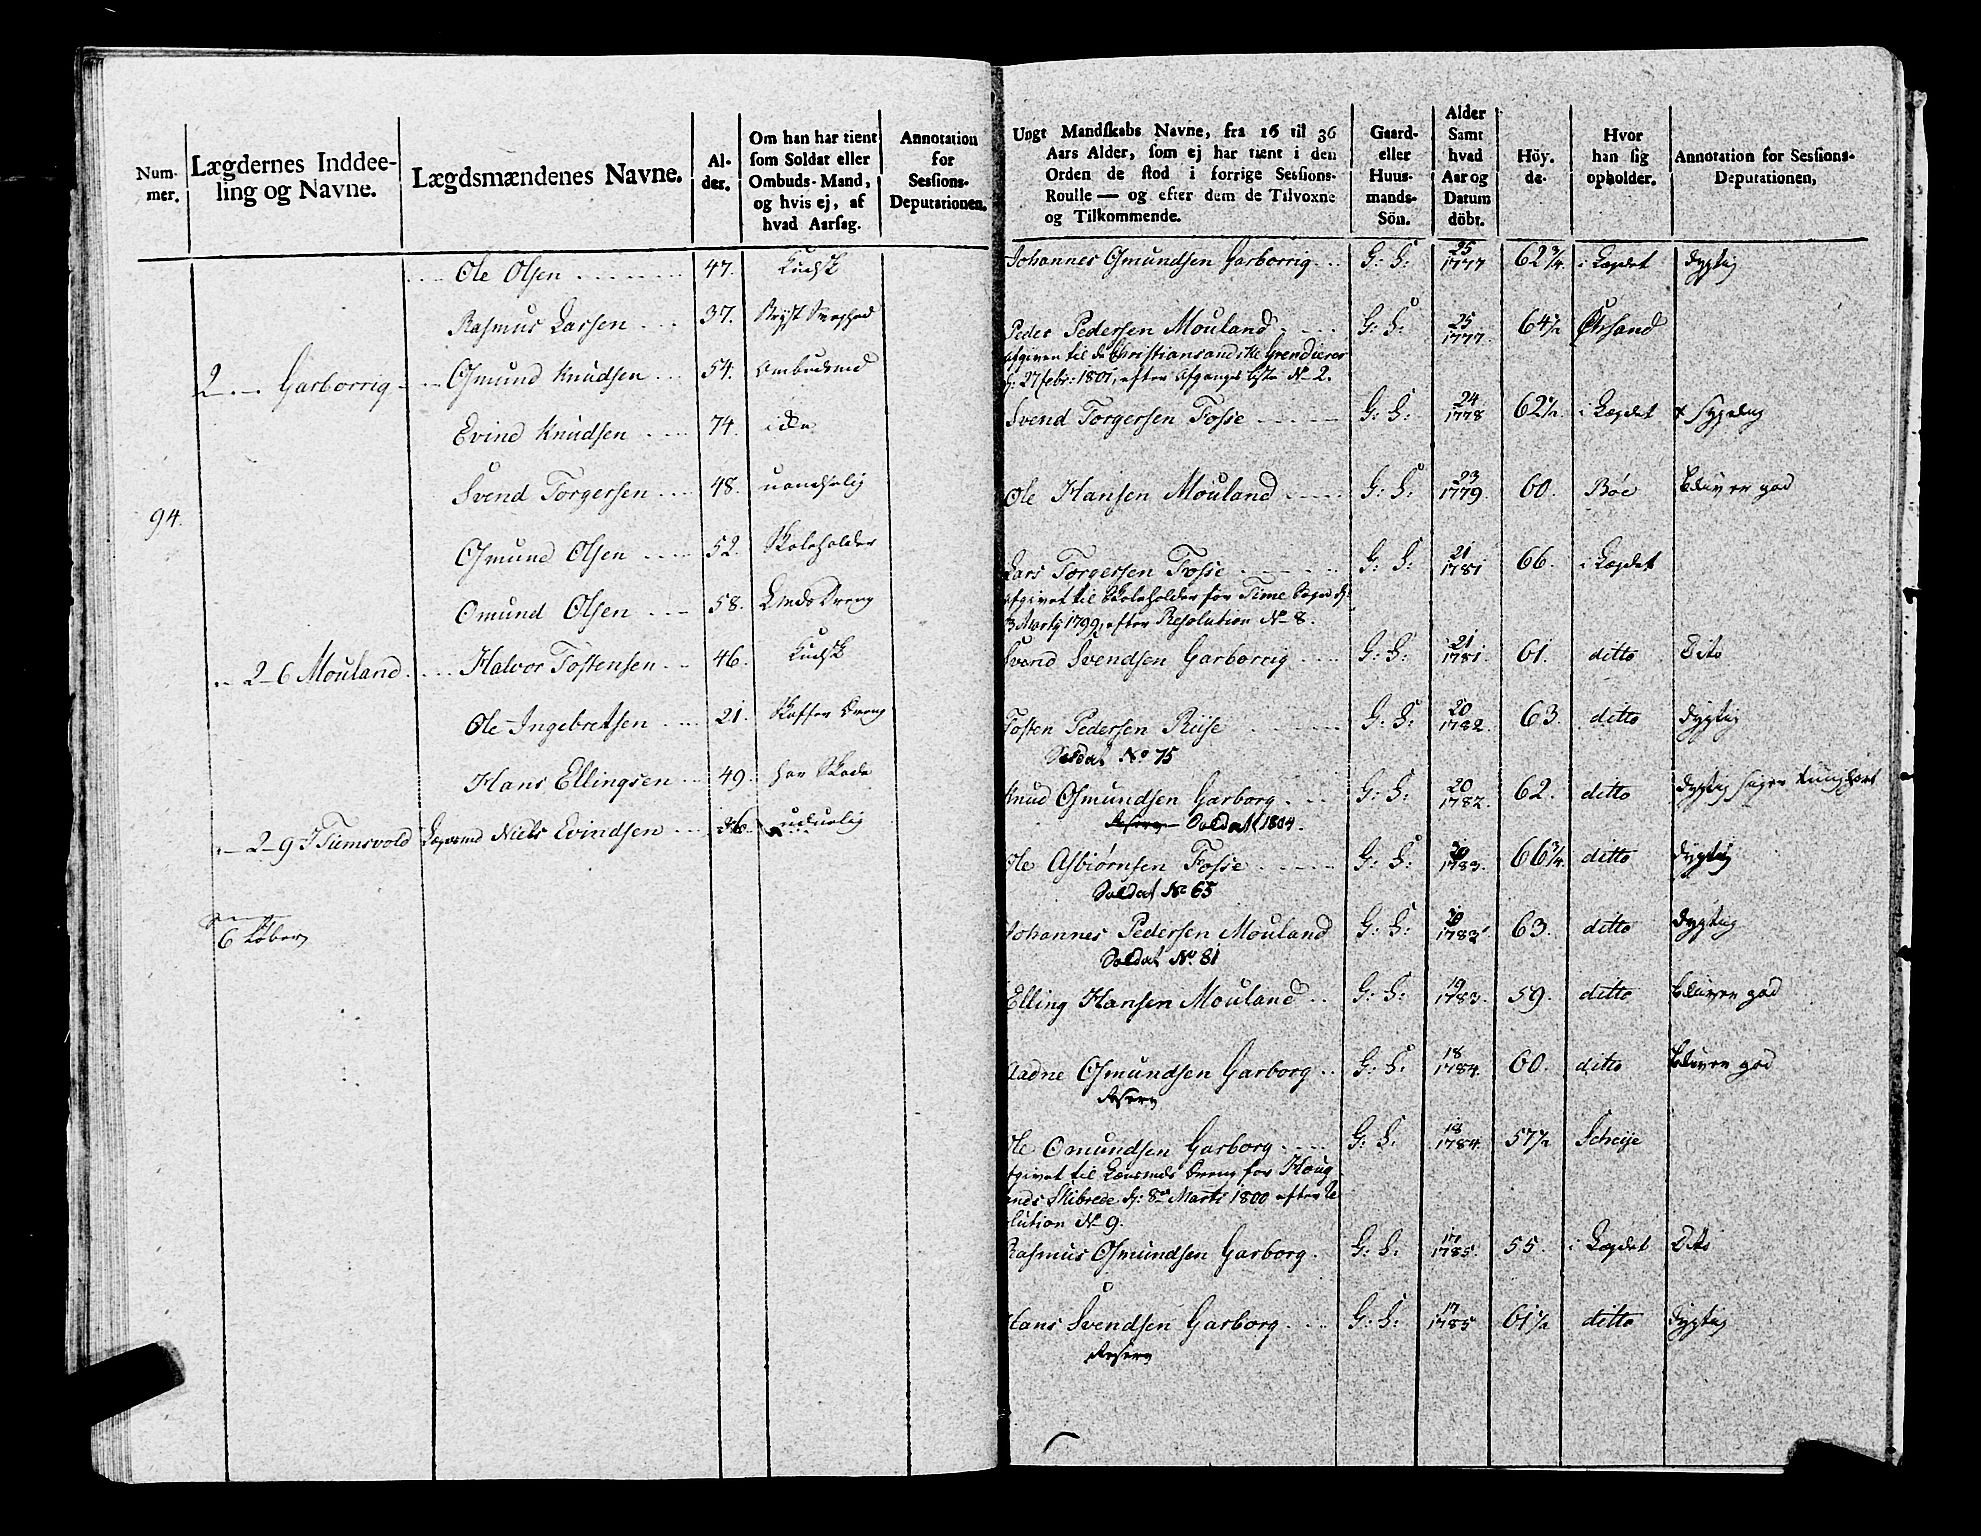 Num-
mer.
Lægdernes Inddee-
ling og Navne.
Lægdsmændenes Navne.
Al-
der.
Om han har tient
som Soldat eller
Ombuds-Mand,
og hvis ej, af
hvad Aarsag.
Annotation
for
Sessions-
Deputationen.
Ole Olsen 47. Kudsk
Rasmus Larsen 37. Bryst Svaghed
2 Garborrig Osmund Knudsen 54. Ombudsmd
Evind Knudsen 74. ide
Svend Torgersen 48. uanseelig
94.
Osmund Olsen 52. Skoleholder
Omund Olsen 58. Dreng
2-6 Mouland Halvor Tostensen 46. Kudsk
Ole Ingebretsen 21. Skaffer Dreng
Hans Ellingsen 49. har Skade
2-9 Tiemsvold Niels Evindsen 36. uduelig
6 Løber
Ungt Mandskabs Navne, fra 16 til 36
Aars Alder, som ej har tient i den
Orden de stod i forrige Sessions-
Roulle — og efter dem de Tilvoxne
og Tilkommende.
Gaard-
eller
Huus-
mands-
Sön.
Alder
Samt
hvad
Aar og
Datum
döbt.
Höy-
de.
Hvor
han sig
opholder.
Annotation for Sessions-
Deputationen,
Johannes Osmundsen Garborrig G: S: 25 1777 62 3/4 i Lægdet dygtig
Peder Pedersen Mouland G: S: 25 1777. 64 1/2 Ørsand
afgiven til de Christiansandske Grenaderer
d: 27 febr: 1801, efter Afgangs Liste No 2.
Svend Torgersen Fosse G: S: 24 1778 62 1/2 i Lægdet + sygelig
Ole Hansen Mouland G: S: 23 1779. 60. Bøe bliver god
Lars Torgersen Fosse G: S: 21 1781 66. i Lægdet
afgivet til Skoleholder for Time Sogn d:
3 Marty 1799, efter Resolution No 8.
Svend Svendsen Garborrig G: S: 21 1781. 61. ditto Dito
Tosten Pedersen Riise G: S: 20 1782. 63. ditto dygtig
Soldat No 75
Knud Osmundsen Garborg G: S: 20 1782. 62. ditto dygtig
Reserv Soldat 1804.
Ole Asbiørnsen Fosse G: S: 1783. 66 3/4 ditto dygtig
Soldat No 65
Johannes Pedersen Mouland G: S: 1783 63. ditto dygtig
Soldat No. 81
Elling Hansen Mouland G: S: 19 1783. 59. ditto bliver god
Aadne Osmundsen Garborg G: S: 18 1784. 60. ditto bliver god
Reserv
Ole Omundsen Garborg G: S: 18 1784. 57 1/2
afgivet til Lænsmds Dreng for Houg
lands Skibrede d: 8de Marti 1800 efter Re
solution No 9.
Rasmus Osmundsen Garborg. G: S: 17 1785. 55. i Lægdet Dito
Hans Svendsen Garborg G: S: 17 1785 61 1/2 ditto dygtig
Reserv